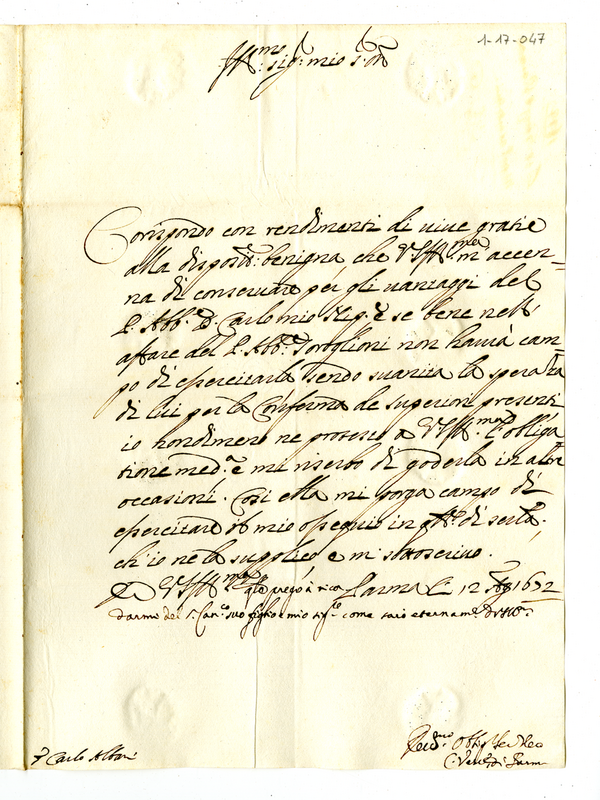 1-17-047
Ill.mo sig.r mio s.r
Corrispondo con rendimenti di uiue gratie
alla disposit.e benigna che V.S. Ill.ma m'accen=
na di conseruare per gli uantaggi del
P. Abb.e D. Carlo mio Nip.e e se bene nell'
affare del P. Abb.e non haurà cam=
po di esercitarla sendo suanita la speranza
di lui per la Conferma de superiori presenti
io nondimeno ne professo a V.S. Ill.ma l'obliga
tione med.a e mi riserbo di goderla in altre
occasioni. Così ella mi porga campo di
esercitare il mio ossequio in di seruirla.
ch'io ne la supplico e mi sottoscriuo.
Di V.S. Ill.ma prego à Parma Li 12 Ag. 1692
darmi del S. Can.co suo figlio e mio sig.r come sarò eternam.e
P. Carlo Albani
Dev.mo Obblig. Ser.
C. di Parma